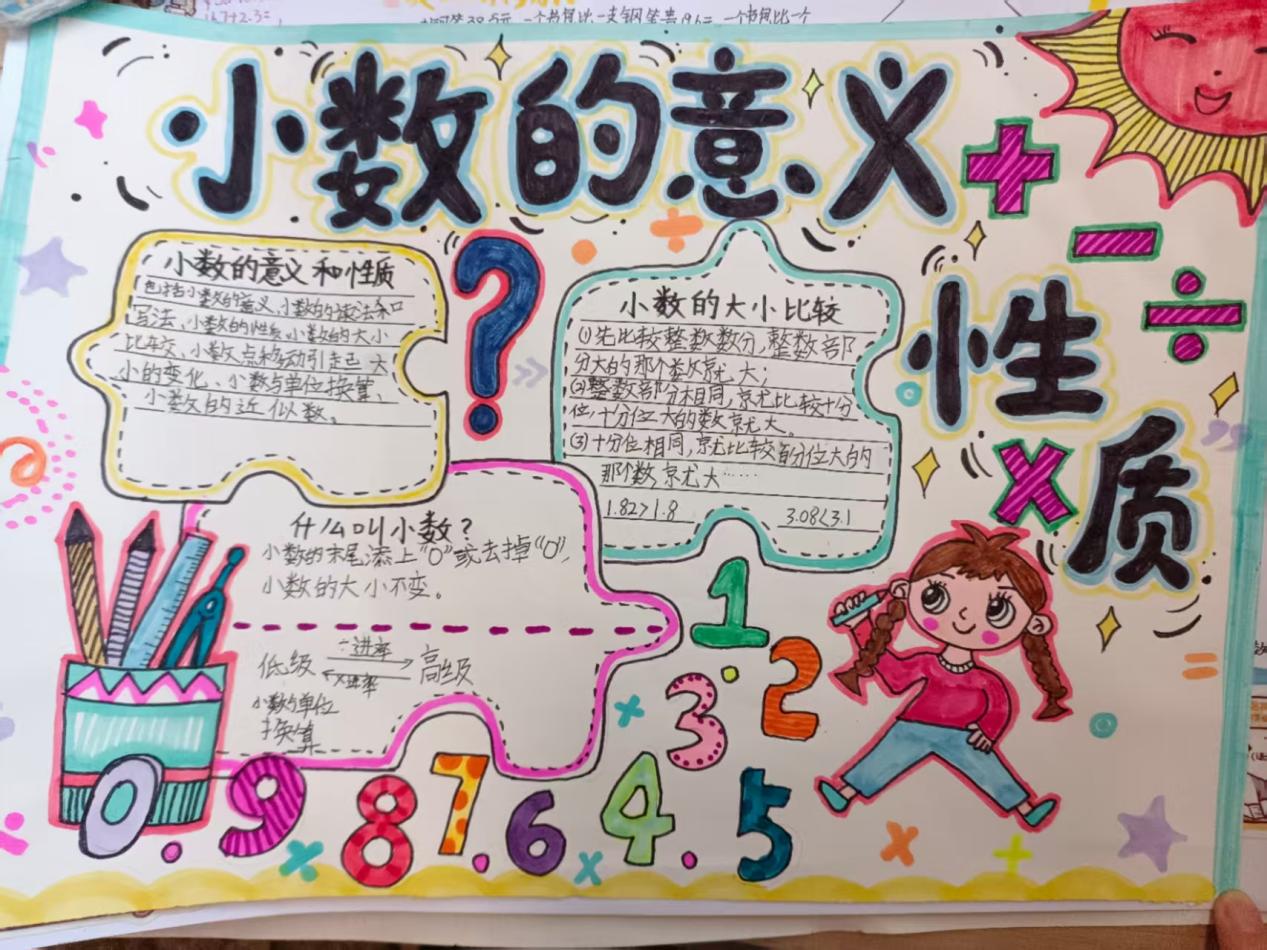 小数的意义
性质
小数的意义和性质
包括小数的意义、小数的读法和
写法、小数的性质、小数的大小
比较、小数点移动引起 大
小的变化、小数与单位换算、
小数的近似数。
小数的大小比较
(1)先比较整数部分,整数部
分大的那个数就 大;
(2)整数部分相同,就比较十分
位,十分位大的数就大。
(3)十分位相同,就比较百分位大的
那个数 就大……
1.82>1.8 3.08<3.1
什么叫小数?
小数的末尾添上“0”或去掉“0”,
小数的大小不变。
÷进率
低级 高级
×进率
小数与单位
换算
+
-
÷
×
?
1
2
3
9 8 7 6 4 5